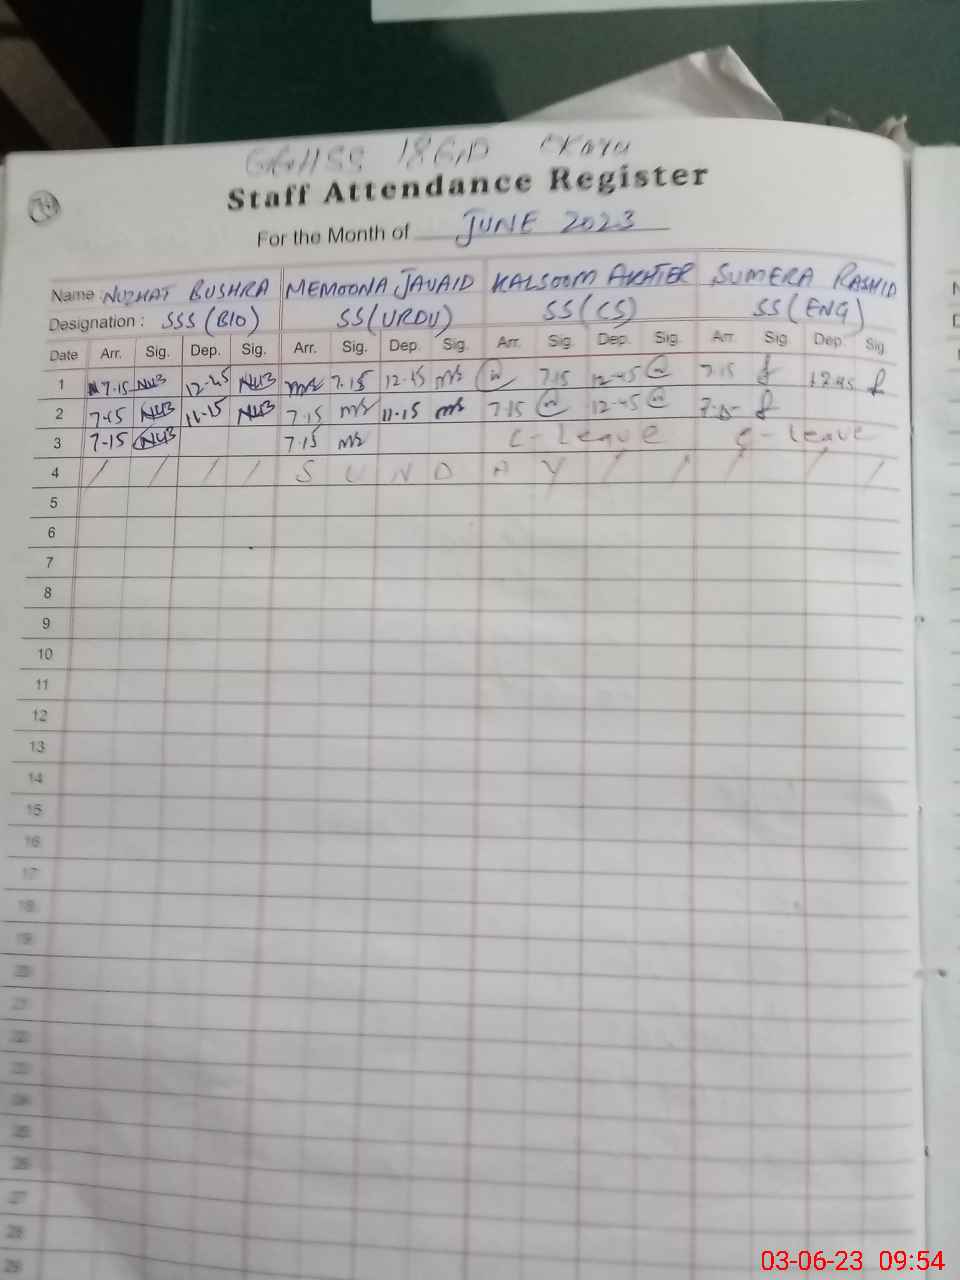 GGHSS 18 GD OKARA
Staff Attendance Register
For the Month of JUNE 2023
Name : NUZHAT BUSHRA MEMOONA JAVAID KALSOOM AKHTER SUMERA RASHID
Designation : SSS (BIO) SS (URDU) SS (CS) SS (ENG)
Date Arr. Sig. Dep. Sig. Arr. Sig. Dep. Sig. Arr. Sig. Dep. Sig. Arr. Sig. Dep. Sig.
1 7-15 NUB 12-45 NUB 7.15 12-45 7.15 12-45 7.15 12.45
2 7-15 NUB 11-15 NUB 7.15 11-15 7-15 12-45 7-15
3 7-15 NUB 7.15 C-Leave C-Leave
4 / / / / S U N D A Y / / / / /
5
6
7
8
9
10
11
12
13
14
15
16
17
18
19
20
21
22
23
24
25
26
27
28
29
03-06-23 09:54